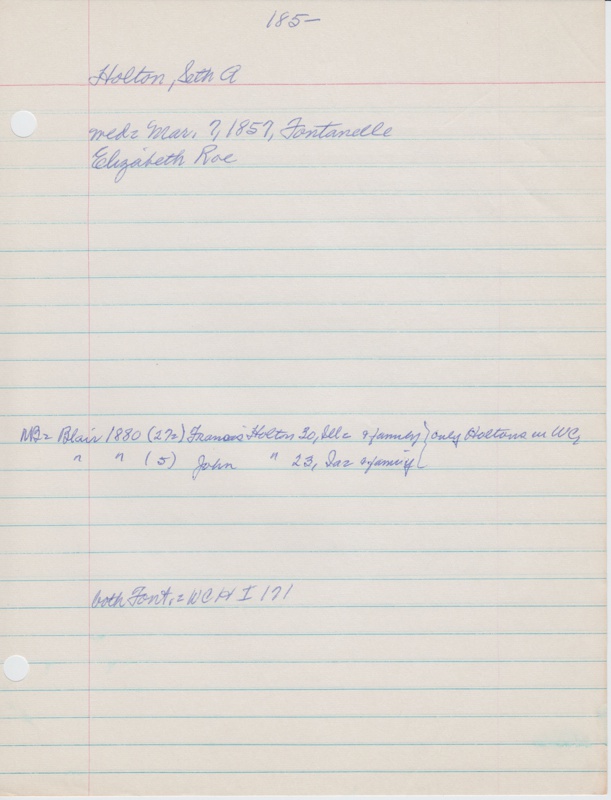 185-
Holton, Seth A
med= Mar. 7, 1857, Fontanelle
Elizabeth Roe
NB= Blair 1880 (272) Francis Holton 30, Ills & family } only Holtons in WC,
" " (5) John " 23, Iaz & family {
both Font. = WCH I 171